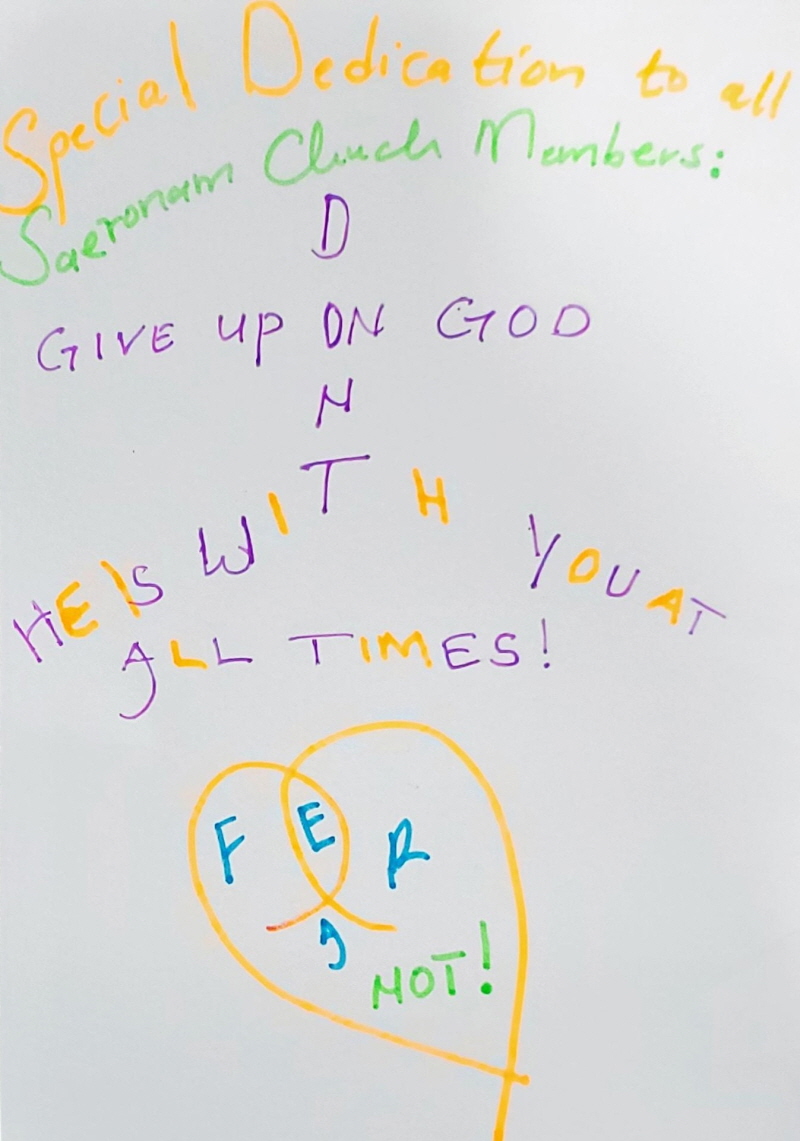 Special Dedication to all
Saeronam Chuch Members:
D
GIVE UP ON GOD
N
T
HE IS WITH YOU AT
ALL TIMES!
F E R
A
NOT!